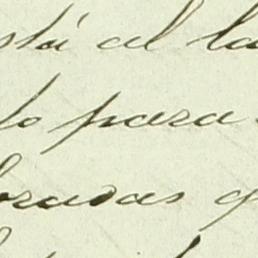 está al la
to para
bradas q